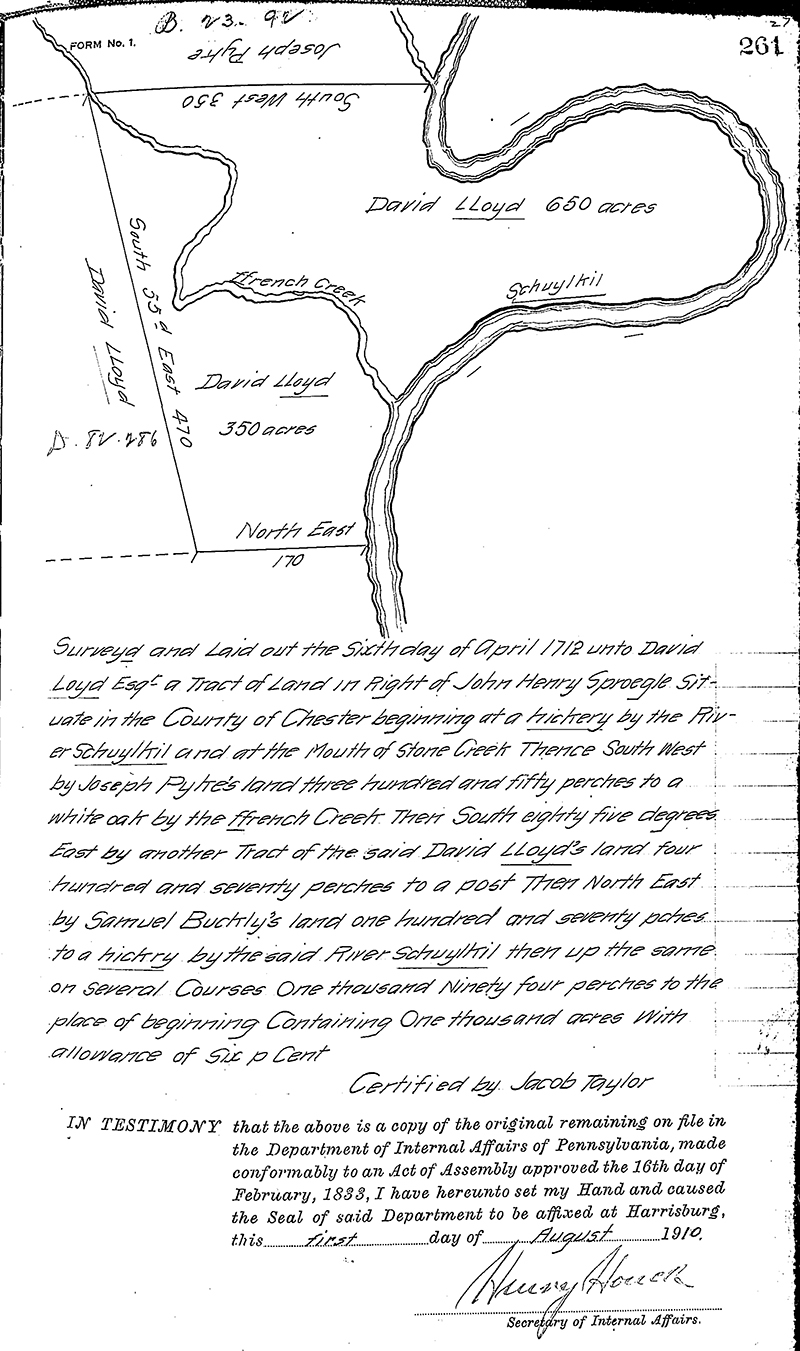 B. 23. 92
27
FORM No. 1.
261
Joseph Pyke
South West 350
David LLoyd 650 acres
South 55d East 470
David LLoyd
ffrench Creek
Schuylkil
David LLoyd
350 acres
D. 82. 286
North East
170
Surveyd and Laid out the Sixth day of April 1712 unto David
Loyd Esqr a Tract of Land in Right of John Henry Sproegle Sit-
uate in the County of Chester beginning at a hickery by the Riv-
er Schuylkil and at the Mouth of Stone Creek Thence South West
by Joseph Pyke's land three hundred and fifty perches to a
white oak by the ffrench Creek Then South eighty five degrees
East by another Tract of the said David LLoyd's land four
hundred and seventy perches to a post Then North East
by Samuel Buckly's land one hundred and seventy pches
to a hickry by the said River Schuylkil then up the same
on several Courses One thousand Ninety four perches to the
place of beginning Containing One thousand acres With
allowance of Six p Cent
Certified by Jacob Taylor
IN TESTIMONY that the above is a copy of the original remaining on file in
the Department of Internal Affairs of Pennsylvania, made
conformably to an Act of Assembly approved the 16th day of
February, 1833, I have hereunto set my Hand and caused
the Seal of said Department to be affixed at Harrisburg,
this first day of August 1910.
Henry Houck
Secretary of Internal Affairs.